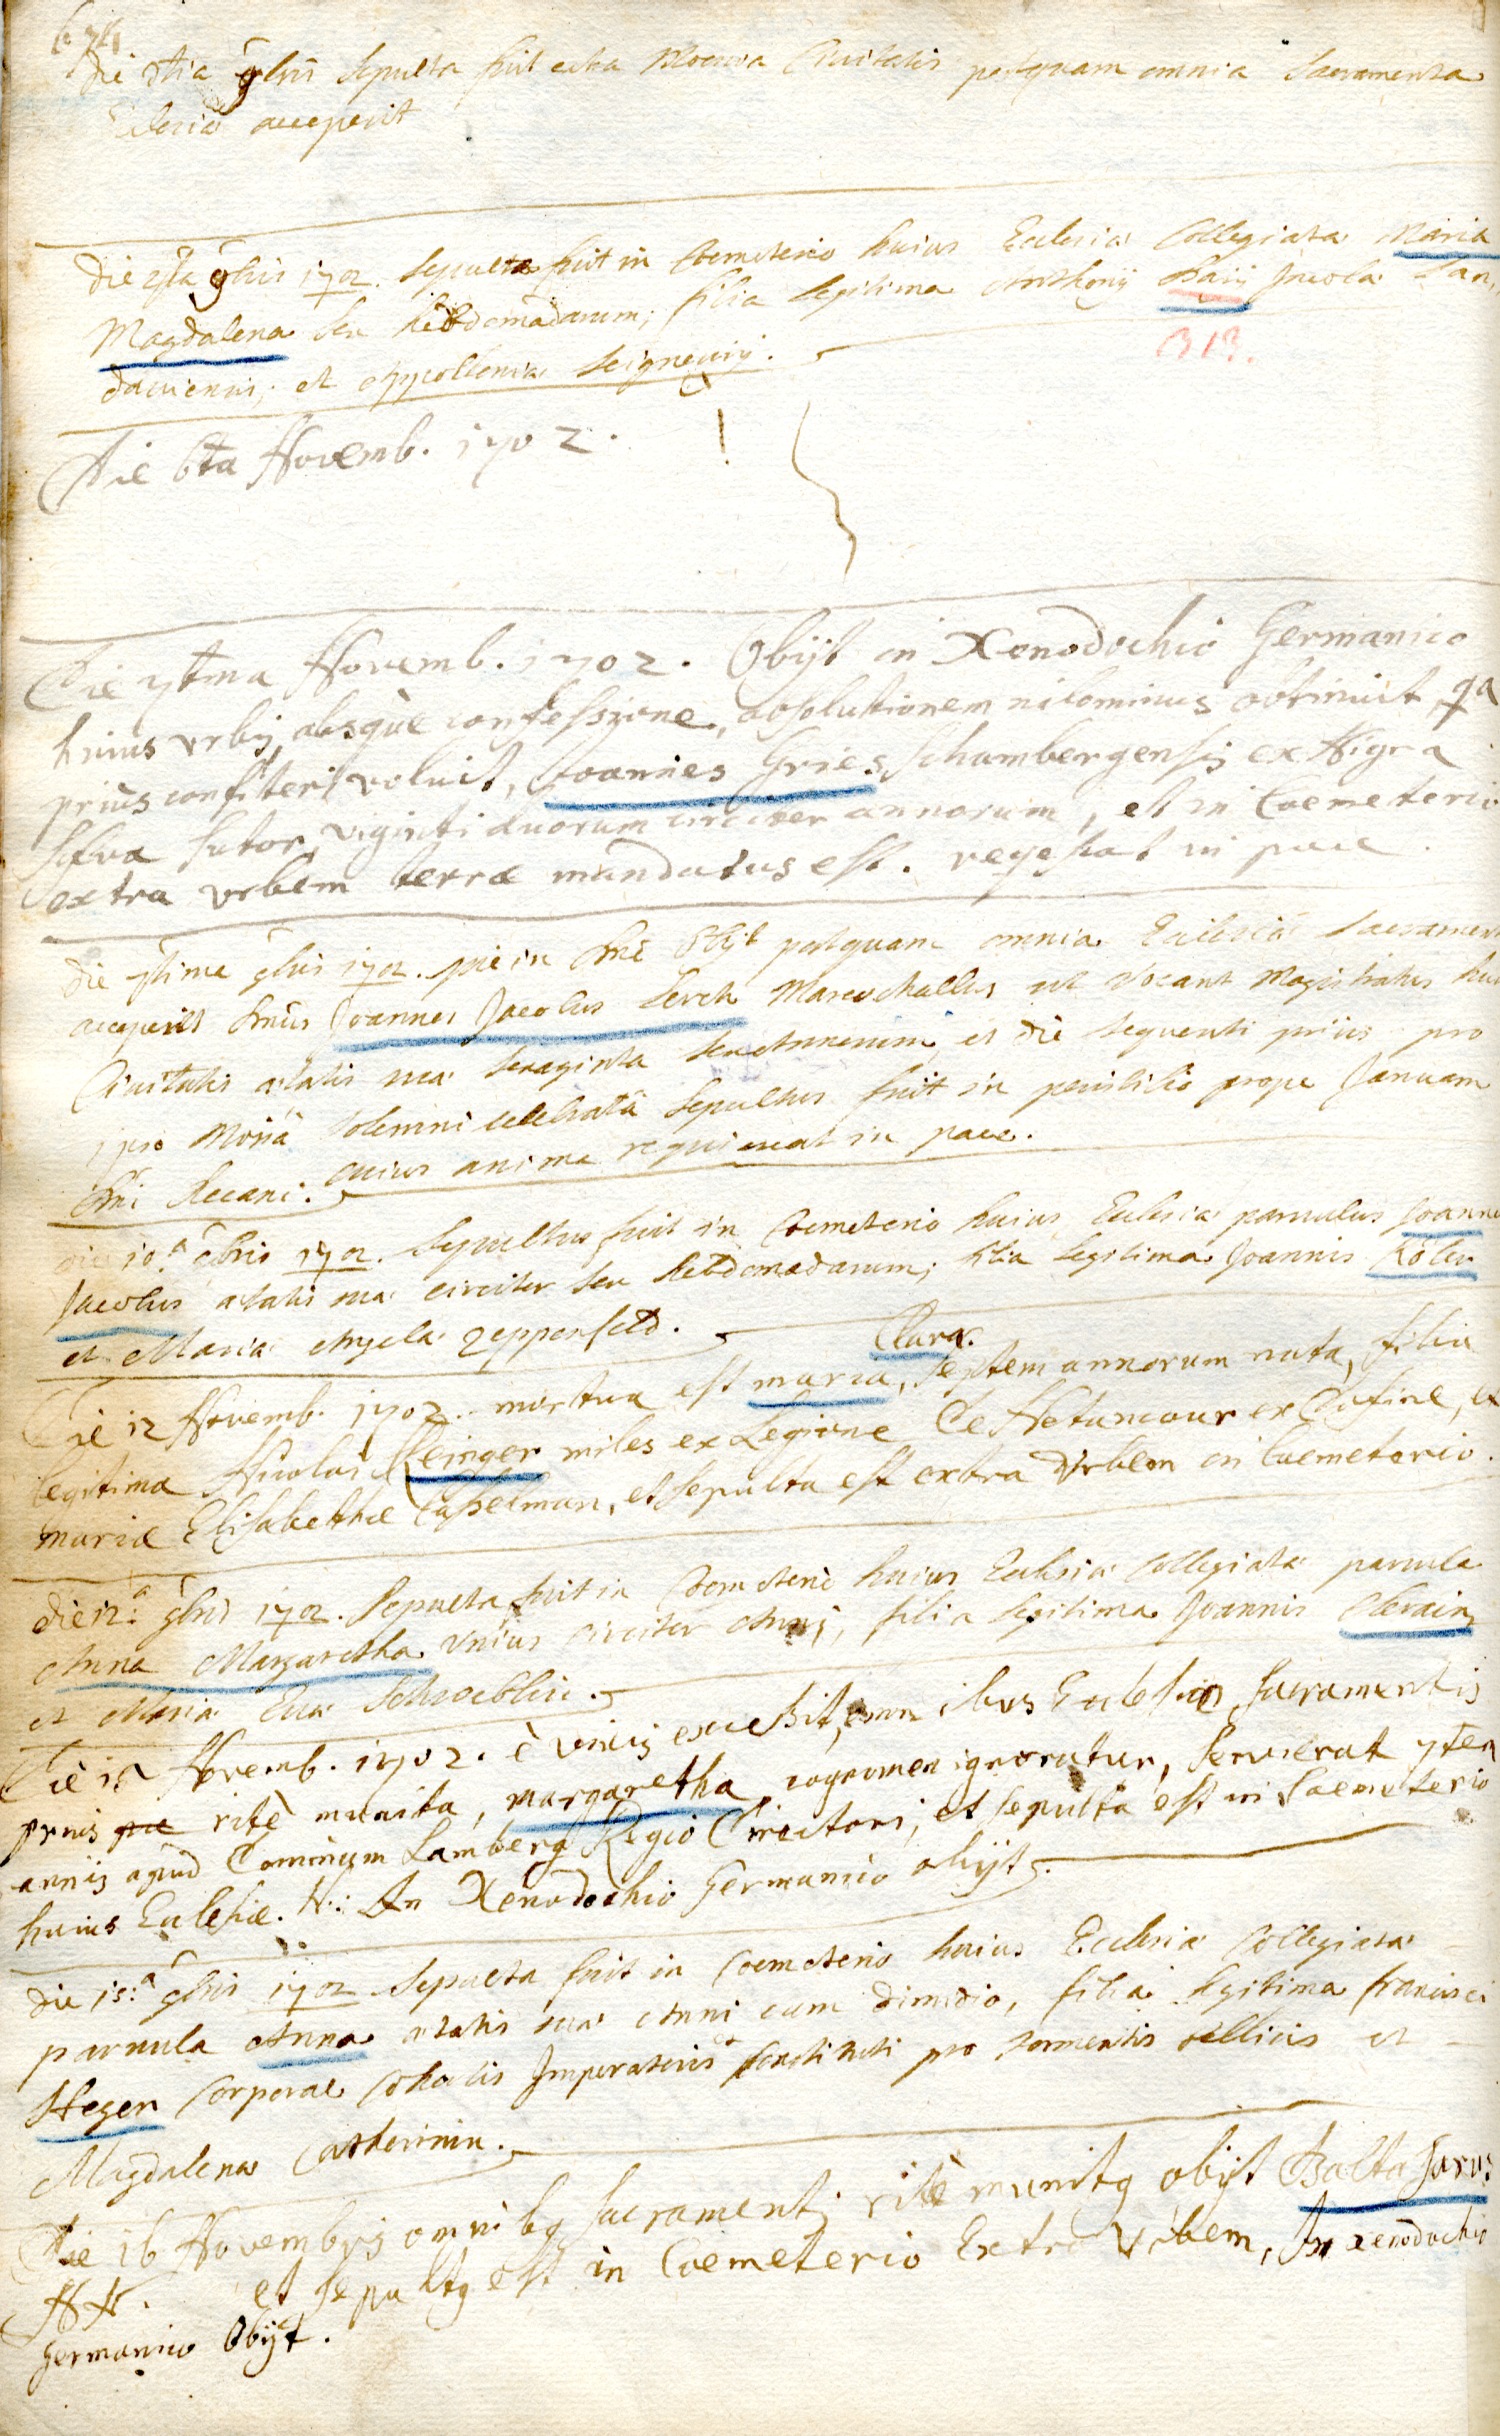 674
die 3tia 9bris Sepulta fuit extra Moenia Civitatis postquam omnia Sacramenta
Ecclesiæ acceperit
die 5ta 9bris 1702. Sepulta fuit in Coemeterio huius Ecclesiæ Collegiatæ Maria
Magdalena sex hebdomadarum; filia legitima Anthonij Incola Lan,
daviensis; et Appolloniæ Seigneurij.
313.
Die 6ta Novemb. 1702.
Die 7tma Novemb. 1702. Obijt in Xenodochio Germanico
huius urbis absque confessione, absolutionem nilominus obtinuit, qa
prius confiteri voluit, Joannes Gries, Schambergensis ex Nigra
Sylva Sutor, viginti duorum circiter annorum, et in Coemeterio
extra urbem terræ mandatus est. reqescat in pace.
die 9bris 1702. pie in Dnō Obijt postquam omnia Ecclesiæ Sacramen
acceperit Dnūs Joannes Jacobus Lerch Mareschallus ut vocant Magistratus hui
Civitatis ætatis suæ sexaginta sex Annorum, et die sequenti prius pro
ipso Missā solemni celebratā Sepultus fuit in peristilio prope Januam
Dni Decani. cuius anima requiescat in pace.
die 10.a 9bris 1702. Sepultus fuit in Coemeterio huius Ecclesiæ parvulus Joannes
Jacobus ætatis suæ circiter sex hebdomadarum; filia legitima Joannis Köler
et Mariæ Angelæ Zeppenfeld.
Clara.
Die 12 Novemb. 1702. mortua est maria, septem annorum nata, filia
legitima Nicolai Reinger miles ex Legione De Netancour ex Dafine, et
mariæ Elisabethæ Casselman, et sepulta est extra Urbem in Coemeterio.
die 12.a 9bris 1702. Sepulta fuit in Coemeterio huius Ecclesiæ Collegiatæ parvula
Anna Margaretha unius circiter Anni, filia legitima Joannis Clerain
et Mariæ Evæ Schroeblin.
Die Novemb. 1702. è vivis excessit, omnibus Ecclesiæ Sacramentis
prius rite munita, margaretha, cognomen ignoratur, Servierat 7tem
annis apud Dominum Lamberg Regio Directori, et sepulta est in Coemeterio
huius Ecclesiæ. N: In Xenodochio Germanico obijt.
die 15.a 9bris 1702 Sepulta fuit in Coemeterio huius Ecclesiæ Collegiatæ
parvula Anna ætatis suæ Anni cum dimidio, filia legitima francisci
Steger Corporal Cohortis Imperatoris constituti pro tormentis bellicis et
Magdalenæ Catherinin.
Die 16 Novembris omnibq sacramentis rite munitq obijt Baltasarus
NN. et sepultq est in Coemeterio Extra Urbem, In xenodochio
Germanico Obijt.